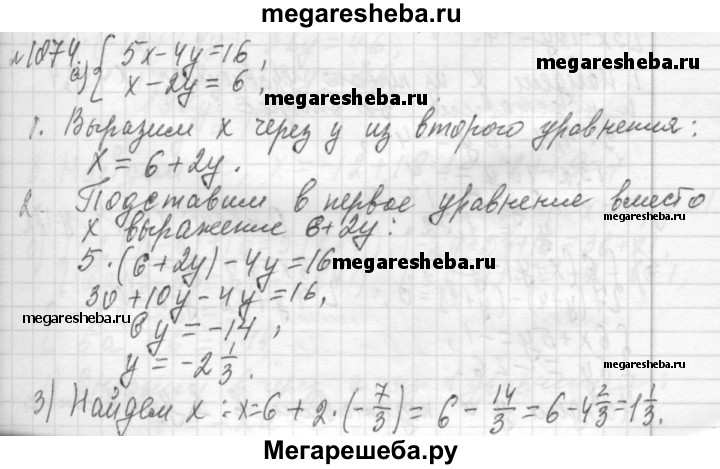 megaresheba.ru
№1074.
а) { 5x-4y=16,
x-2y=6,
megaresheba.ru
megaresheba.ru
1. Выразим x через y из второго уравнения:
x = 6+2y.
2. Подставим в первое уравнение вместо
megaresheba.ru
x выражение 6+2y:
5·(6+2y)-4y=16
megaresheba.ru
30+10y-4y=16,
megaresheba.ru
6y = -14,
y = -2 1/3.
megaresheba.ru
3) Найдем x: x=6+2·(-7/3)=6-14/3=6-4 2/3=1 1/3.
Мегарешеба.ру